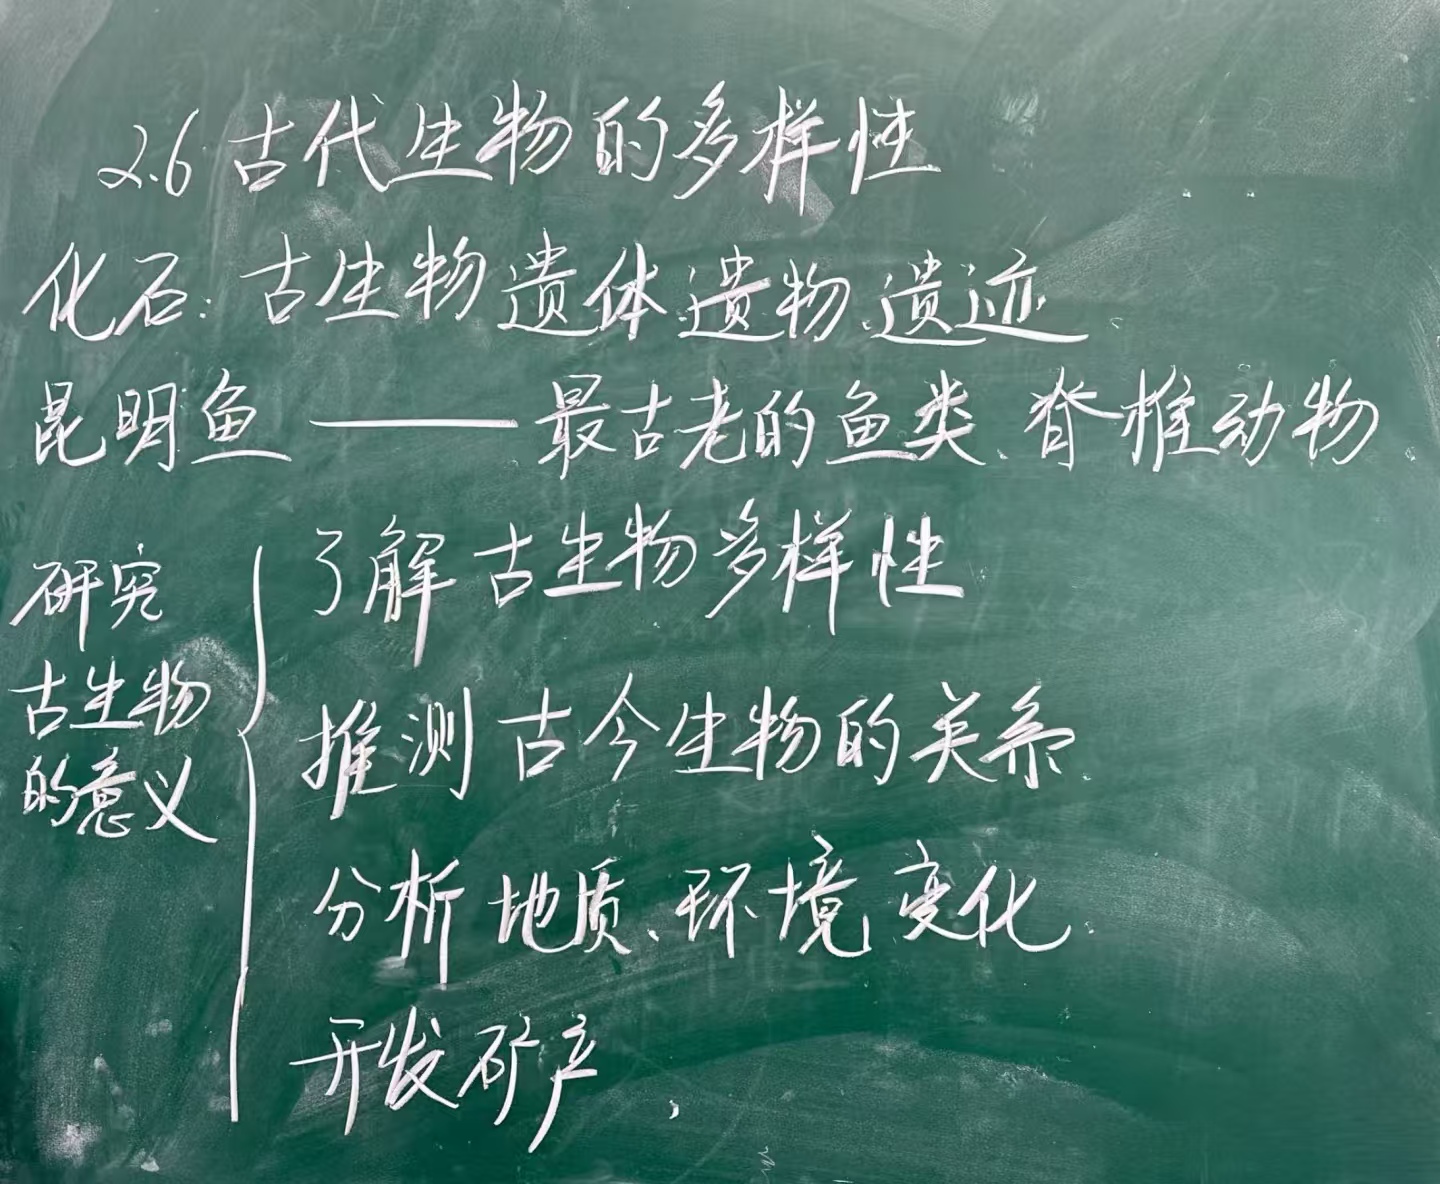 2.6 古代生物的多样性
化石：古生物遗体、遗物、遗迹.
昆明鱼——最古老的鱼类、脊椎动物.
研究
古生物
的意义
了解古生物多样性
推测古今生物的关系.
分析地质、环境变化.
开发矿产,